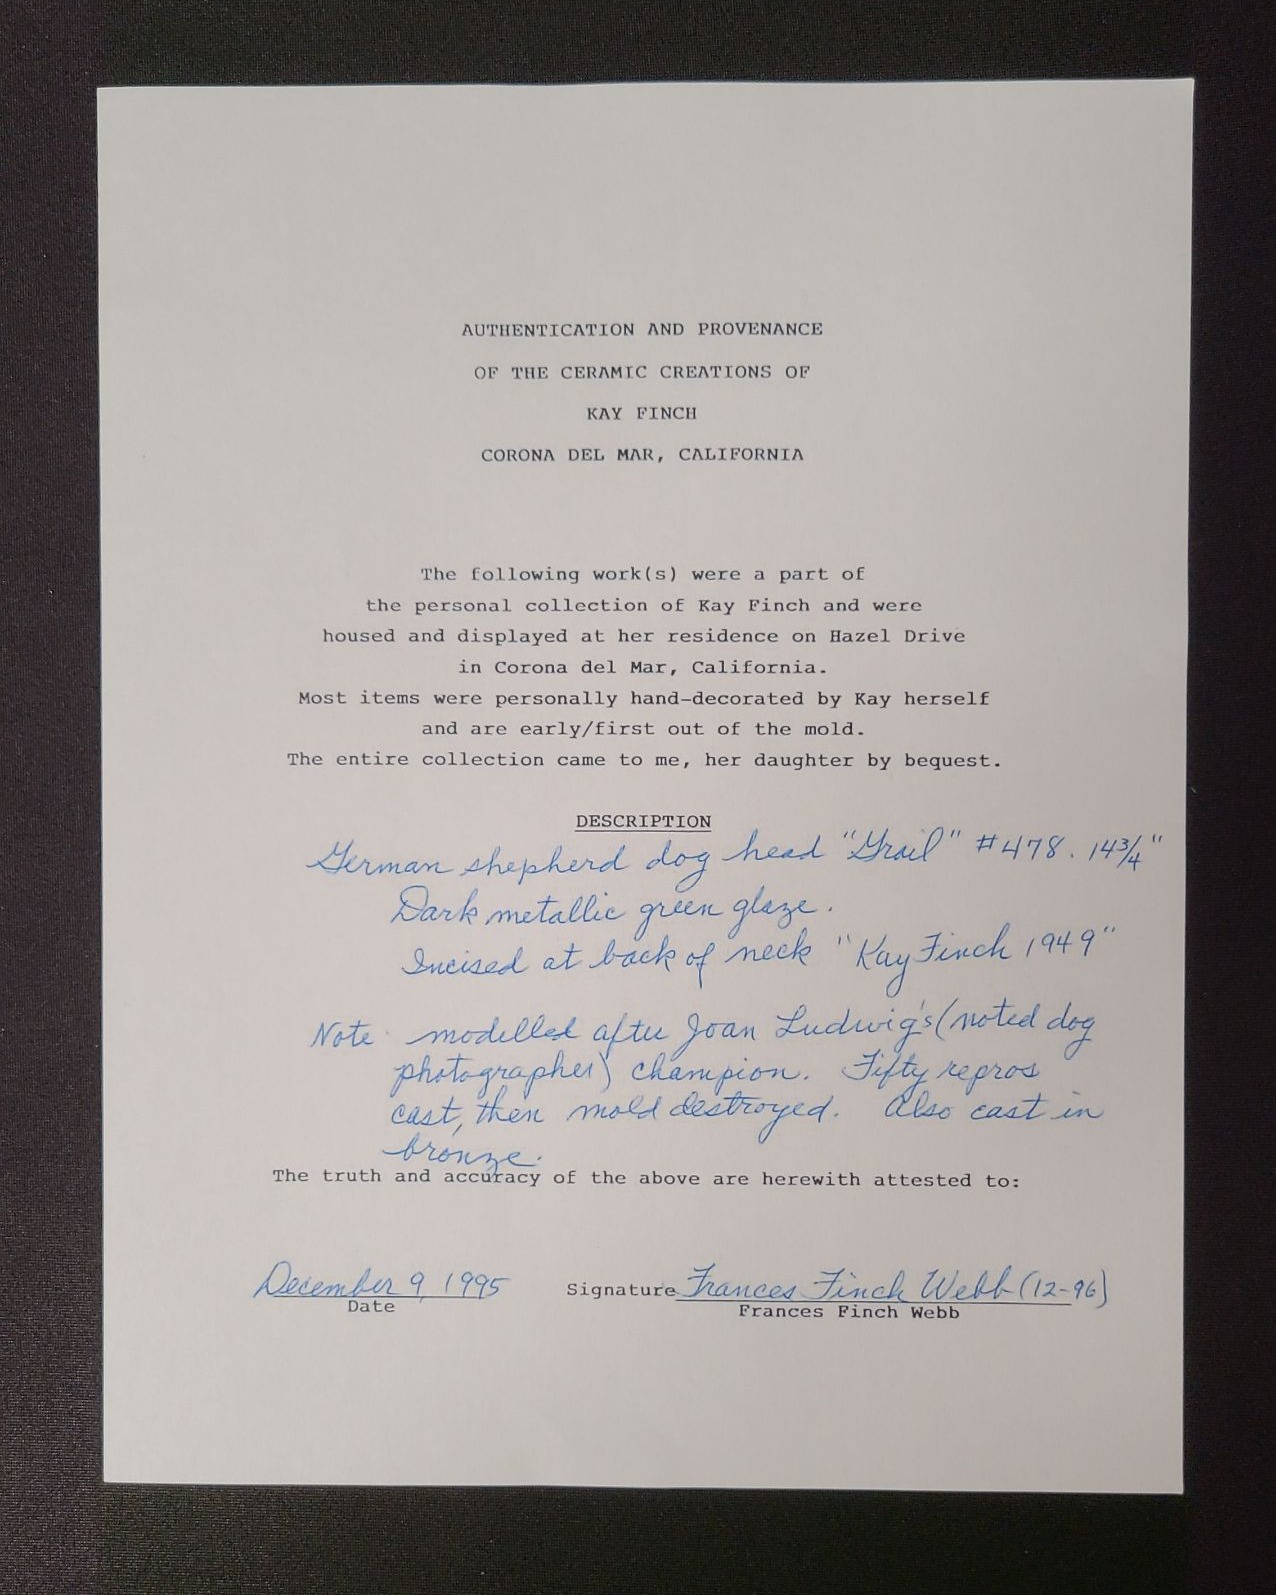 AUTHENTICATION AND PROVENANCE
OF THE CERAMIC CREATIONS OF
KAY FINCH
CORONA DEL MAR, CALIFORNIA
The following work(s) were a part of
the personal collection of Kay Finch and were
housed and displayed at her residence on Hazel Drive
in Corona del Mar, California.
Most items were personally hand-decorated by Kay herself
and are early/first out of the mold.
The entire collection came to me, her daughter by bequest.
DESCRIPTION
German shepherd dog head "Grail" #478. 14 3/4"
Dark metallic green glaze.
Incised at back of neck "Kay Finch 1949"
Note modelled after Joan Ludwig's (noted dog
photographer) champion. Fifty repros
cast, then mold destroyed. Also cast in
bronze.
The truth and accuracy of the above are herewith attested to:
December 9, 1995 Signature Frances Finch Webb (12-96)
Date Frances Finch Webb